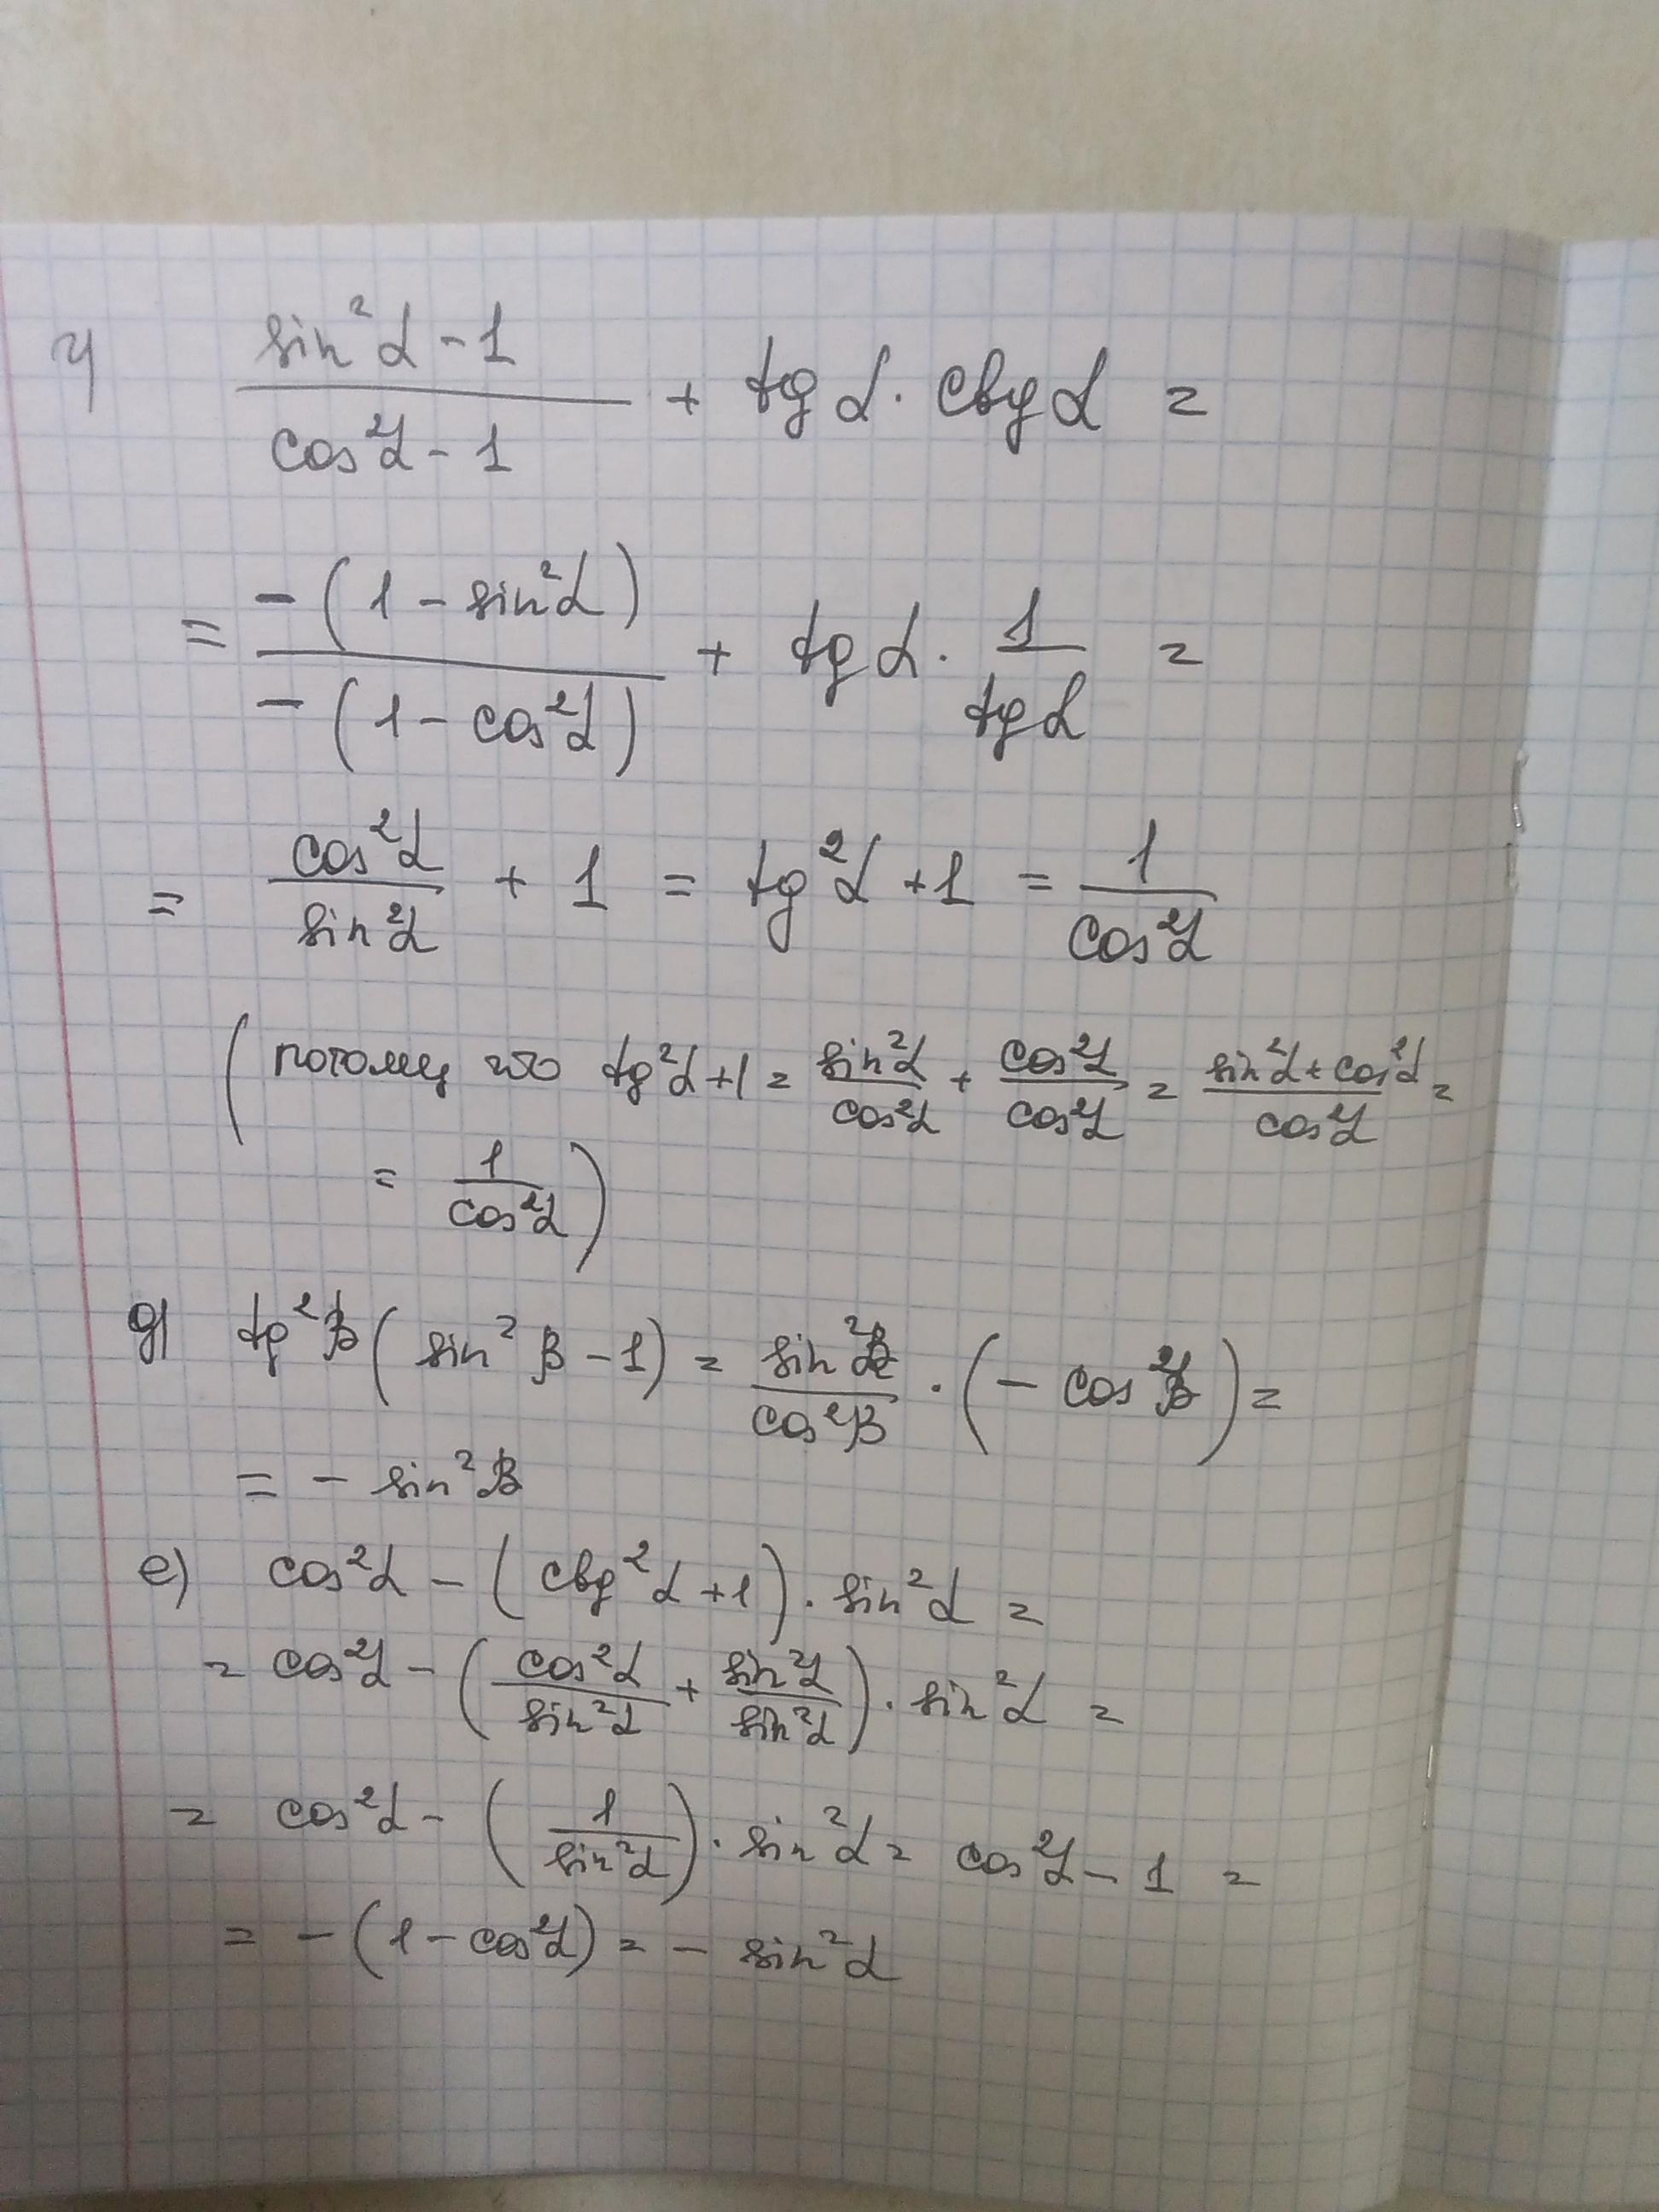 г) (sin²α - 1)/(cos²α - 1) + tg α · ctg α =
= (-(1 - sin²α))/(-(1 - cos²α)) + tg α · 1/(tg α) =
= cos²α/sin²α + 1 = tg²α + 1 = 1/cos²α
(потому что tg²α + 1 = sin²α/cos²α + cos²α/cos²α = (sin²α + cos²α)/cos²α =
= 1/cos²α)
д) tg²β (sin²β - 1) = sin²β/cos²β · (- cos²β) =
= - sin²β
е) cos²α - (ctg²α + 1) · sin²α =
= cos²α - (cos²α/sin²α + sin²α/sin²α) · sin²α =
= cos²α - (1/sin²α) · sin²α = cos²α - 1 =
= - (1 - cos²α) = - sin²α